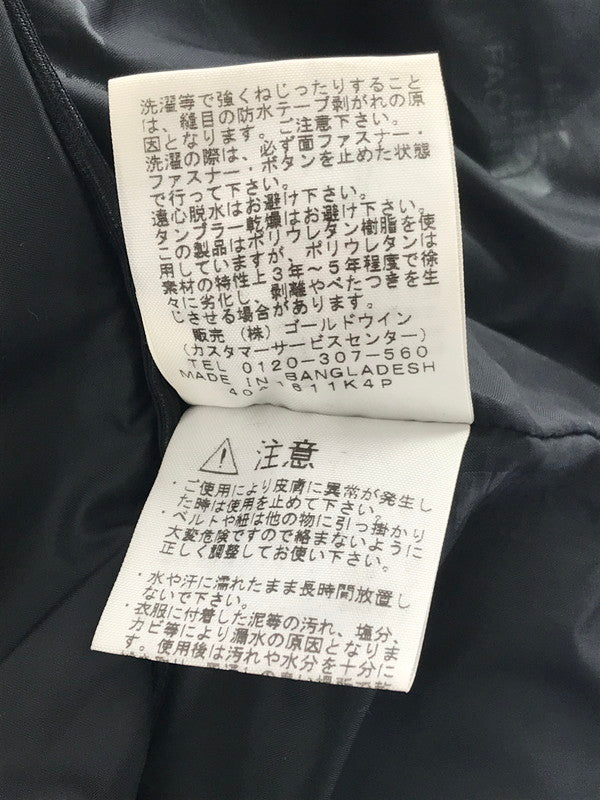 洗濯等で強くねじったりすること
は、縫目の防水テープ剥がれの原
因となります。ご注意下さい。
洗濯の際は、必ず面ファスナー・
ファスナー・ボタンを止めた状態
で行って下さい。
遠心脱水はお避け下さい。
タンブラー乾燥はお避け下さい。
この製品はポリウレタン樹脂を使
用していますが、ポリウレタンは
素材の特性上3年～5年程度で徐
々に劣化し、剥離やべたつきを生
じさせる場合があります。
販売 (株) ゴールドウイン
(カスタマーサービスセンター)
TEL 0120-307-560
MADE IN BANGLADESH
注意
・ご使用により皮膚に異常が発生し
た時は使用を止めて下さい。
・ベルトや紐は他の物に引っ掛かり
大変危険ですので絡まないように
正しく調整してお使い下さい。
・水や汗に濡れたまま長時間放置し
ないで下さい。
・衣服に付着した泥等の汚れ、塩分、
カビ等により漏水の原因となりま
す。使用後は汚れや水分を十分に